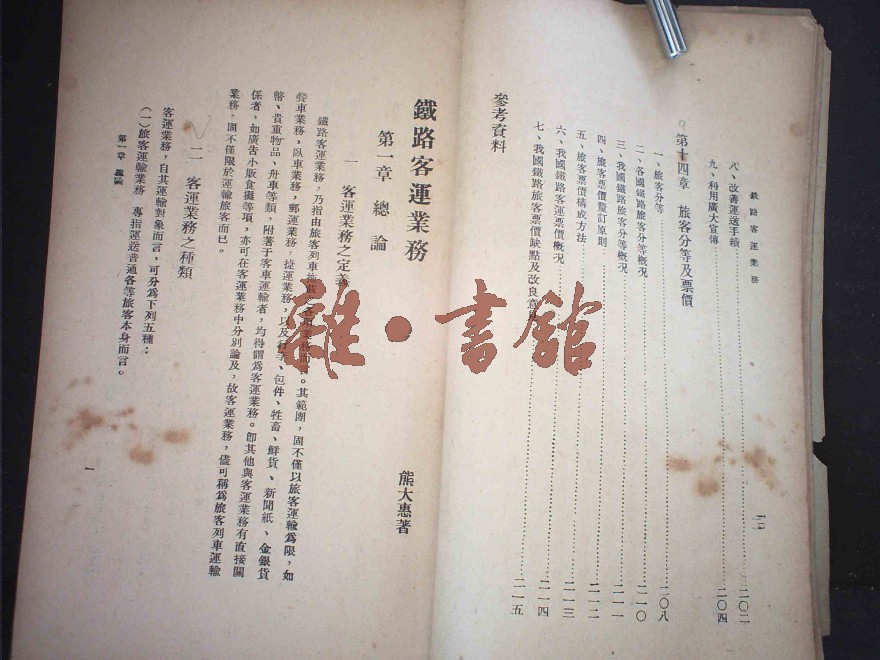 鐵路客運業務
八、改善運送手續……二〇二
九、利用廣大宣傳……二〇四
第十四章 旅客分等及票價
一、旅客分等……二〇八
二、各國鐵路旅客分等概況……二一〇
三、我國鐵路旅客分等概況……二一一
四、旅客票價釐訂原則……二一二
五、旅客票價構成方法……二一三
六、我國鐵路客運票價概況……二一四
七、我國鐵路旅客票價缺點及改良意見……二一五
參考資料
鐵路客運業務
熊大惠著
第一章 總論
一 客運業務之定義
鐵路客運業務，乃指由旅客列車拖載之各項業務而言。其範圍，固不僅以旅客運輸為限，如
餐車業務，臥車業務，郵運業務，捷運業務，以及行李、包件、牲畜、鮮貨、新聞紙、金銀貨
幣、貴重物品、舟車等類，附著于客車運輸者，均得謂為客運業務。卽其他與客運業務有直接關
係者，如廣告小販食攤等項，亦可在客運業務中分別論及，故客運業務，儘可稱為旅客列車運輸
業務，固不僅限於運輸旅客而已。
二 客運業務之種類
客運業務，自其運輸對象而言，可分為下列五種：
（一）旅客運輸業務 專指運送普通各等旅客本身而言。
第一章 總論
一
雜·書館